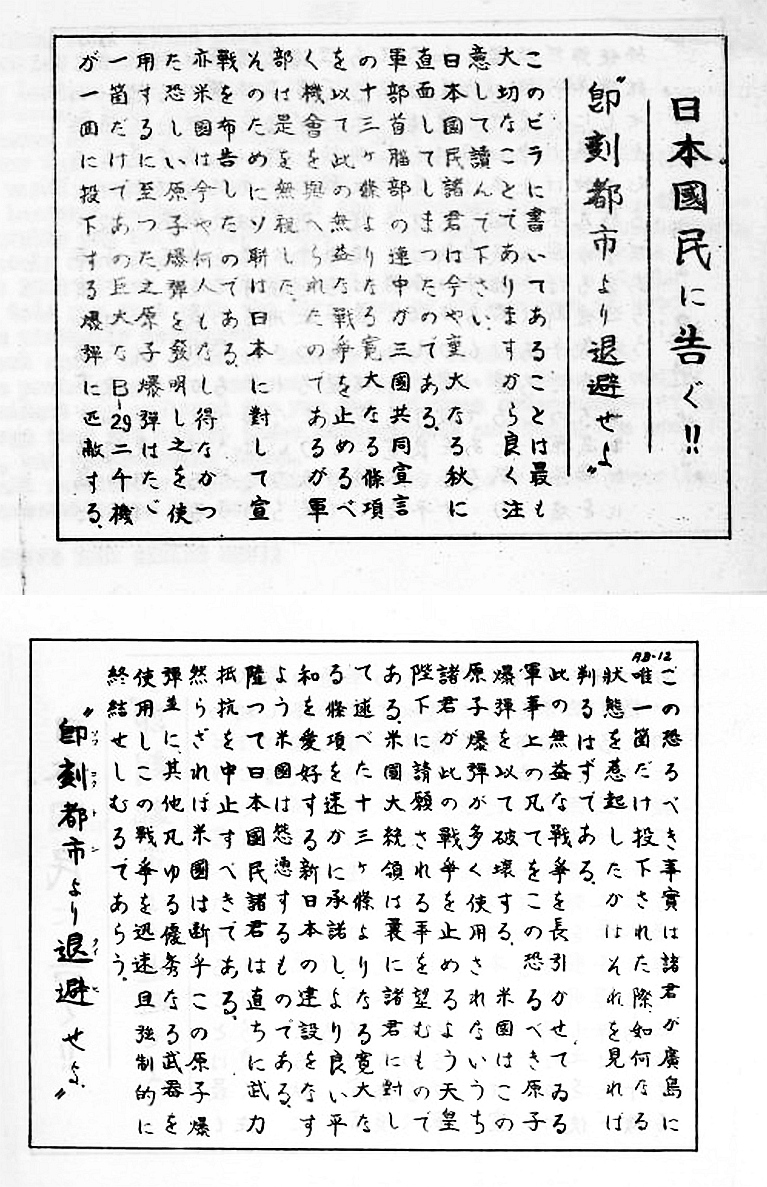 日本國民に告ぐ!!
“即刻都市より退避せよ”
このビラに書いてあることは最も
大切なことでありますから良く注
意して讀んで下さい
日本國民諸君は今や重大なる秋に
直面してしまつたのである
軍部首脳部の連中が三國共同宣言
の十三ヶ條よりなる寛大なる條項
を以て此の無益な戦争を止めるべ
く機會を與へられたのであるが軍
部は是を無視した
そのためにソ聯は日本に對して宣
戰を布告したのである
亦米國は今や何人もなし得なかつ
た恐しい原子爆彈を發明し之を使
用するに至つた之原子爆彈はたゞ
一箇だけであの巨大なB-29二千機
が一回に投下する爆彈に匹敵する
AB-12
この恐るべき事實は諸君が廣島に
唯一箇だけ投下された際如何なる
狀態を惹起したかはそれを見れば
判るはずである
此の無益な戦争を長引かせてゐる
軍事上の凡てをこの恐るべき原子
爆彈を以て破壊する 米國はこの
原子爆彈が多く使用されないうち
諸君が此の戦争を止めるよう天皇
陛下に請願される事を望むもので
ある米國大統領は曩に諸君に對し
て述べた十三ヶ條よりなる寛大な
る條項を速かに承諾しより良い平
和を愛好する新日本の建設をなす
よう米國は慫慂するものである
陸つて日本國民諸君は直ちに武力
抵抗を中止すべきである
然らざれば米國は断乎この原子爆
彈並に其他凡ゆる優秀なる武器を
使用しこの戦争を迅速且強制的に
終結せしむるであらう
“即刻都市より退避せよ”